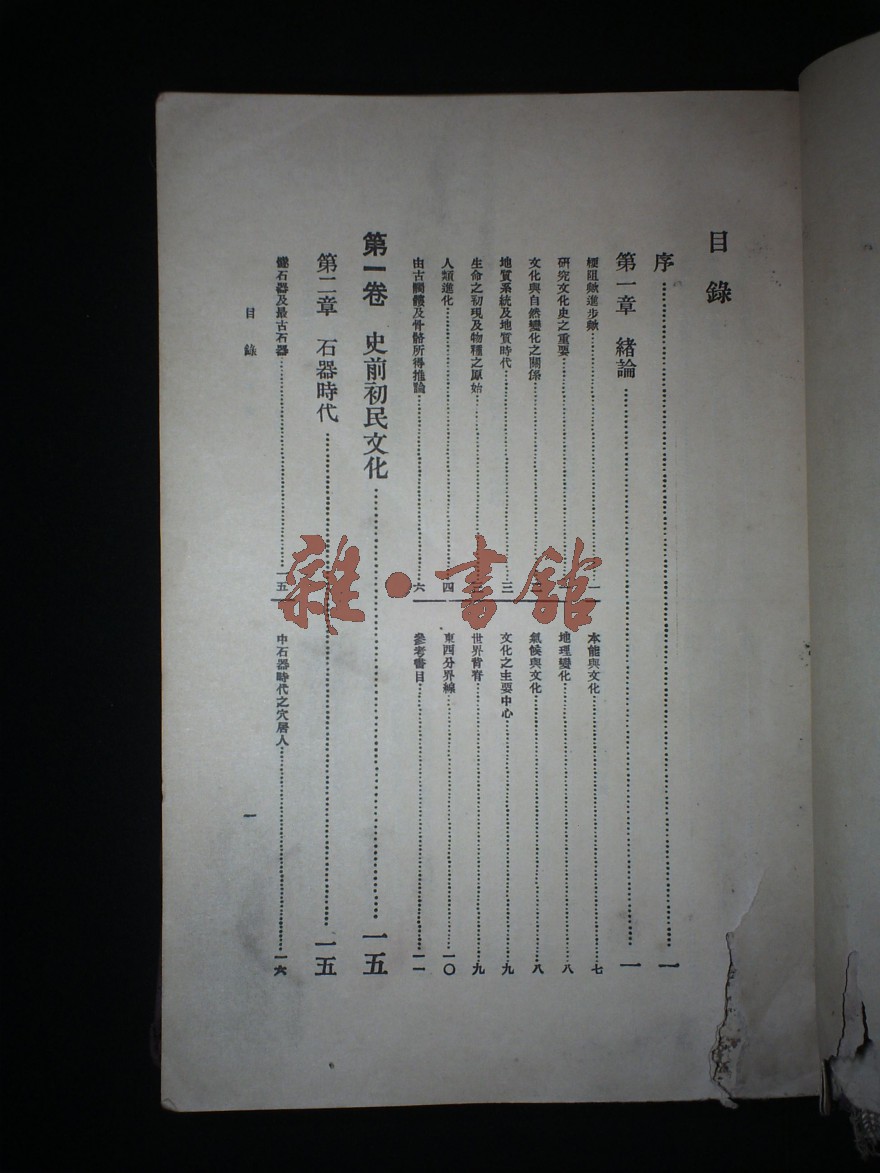 目錄
序……一
第一章 緒論……一
梗阻歟進步歟……一
研究文化史之重要……
文化與自然變化之關係……
地質系統及地質時代……三
生命之初現及物種之原始……
人類進化……四
由古髑髏及骨骼所得推論……六
本能與文化……七
地理變化……八
氣候與文化……八
文化之主要中心……九
世界背脊……九
東西分界線……一〇
參考書目……一一
第一卷 史前初民文化……一五
第二章 石器時代……一五
石器及最古石器……一五
中石器時代之穴居人……一六
目錄
一
雜·書館